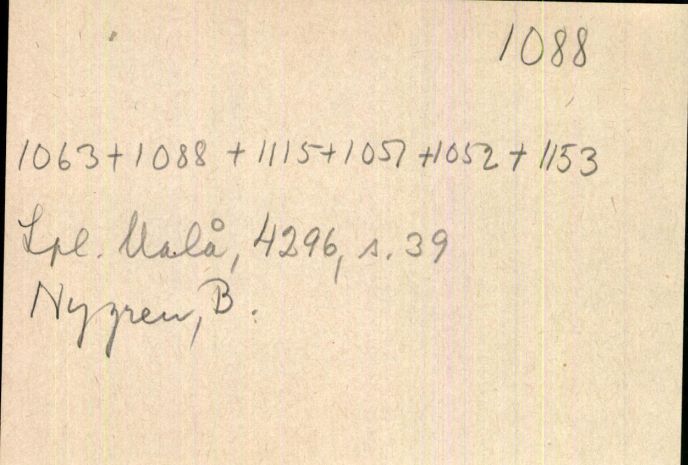 1088
1063+1088+1115+1051+1052+1153
Lpl. Malå, 4296, s. 39
Nygren, B.